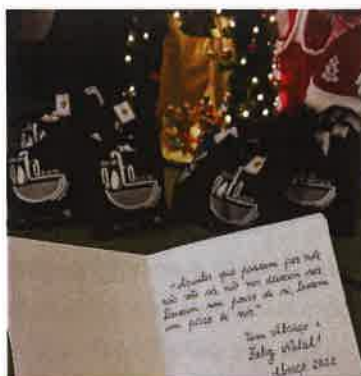 "Aqueles que passam por nós
não vão sós, não nos deixam sós.
Deixam um pouco de si, levam
um pouco de nós."
Um Abraço e
Feliz Natal!
2022